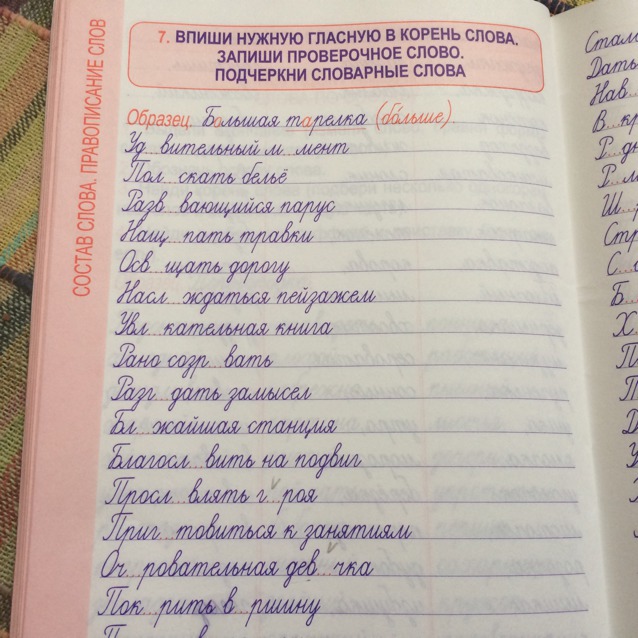 СОСТАВ СЛОВА. ПРАВОПИСАНИЕ СЛОВ
7. ВПИШИ НУЖНУЮ ГЛАСНУЮ В КОРЕНЬ СЛОВА.
ЗАПИШИ ПРОВЕРОЧНОЕ СЛОВО.
ПОДЧЕРКНИ СЛОВАРНЫЕ СЛОВА
Образец. Большая тарелка (больше).
Уд...вительный м...мент
Пол...скать бельё
Разв...вающийся парус
Нащ...пать травки
Осв...щать дорогу
Насл...ждаться пейзажем
Увл...кательная книга
Рано созр...вать
Разг...дать замысел
Бл...жайшая станция
Благосл...вить на подвиг
Просл...влять г...роя
Приг...товиться к занятиям
Оч...ровательная дев...чка
Пок...рить в...ршину
Дать
Нав
В...кр
Р...дн
Р...м
Ш...
Стр
С...
Б...
Х...